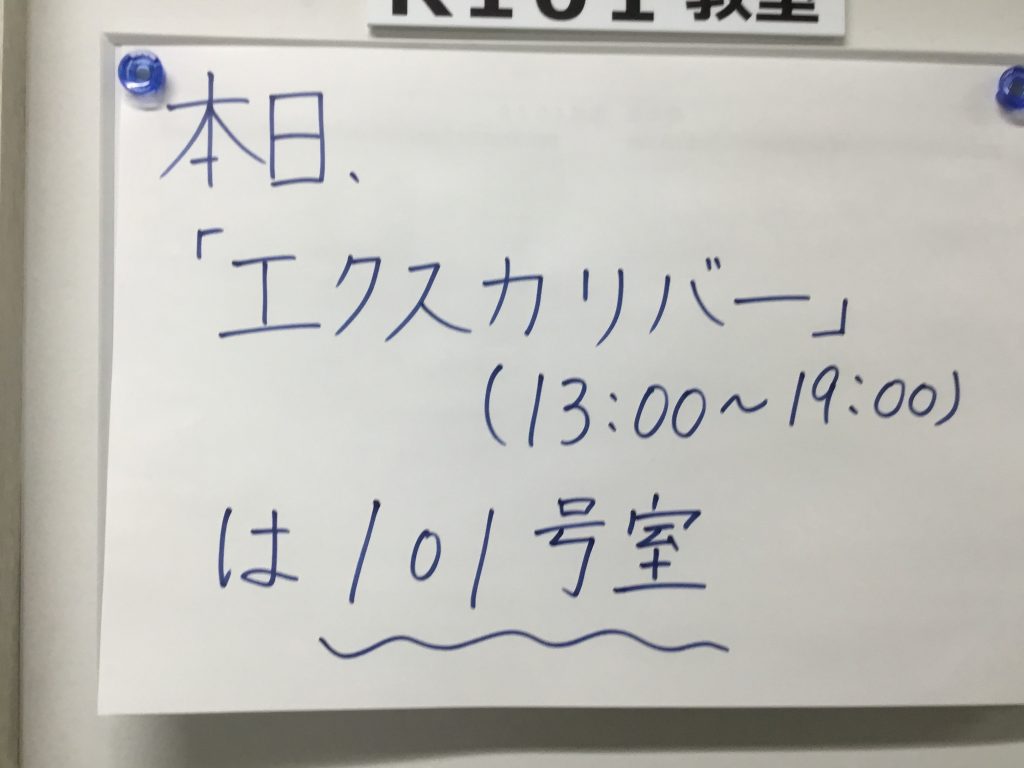 R101 教室
本日、
「エクスカリバー」
(13:00～19:00)
は 101 号室